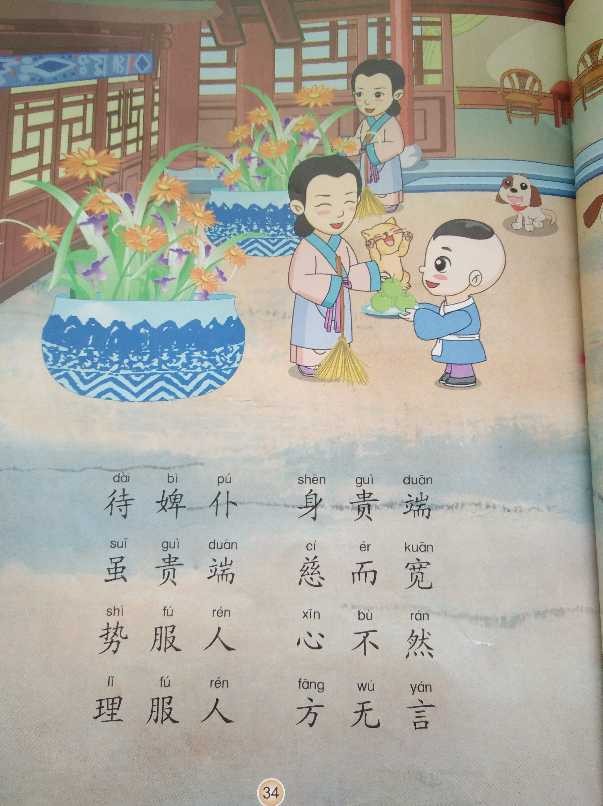 dài bì pú shēn guì duān
待婢仆 身贵端
suī guì duān cí ér kuān
虽贵端 慈而宽
shì fú rén xīn bù rán
势服人 心不然
lǐ fú rén fāng wú yán
理服人 方无言
34